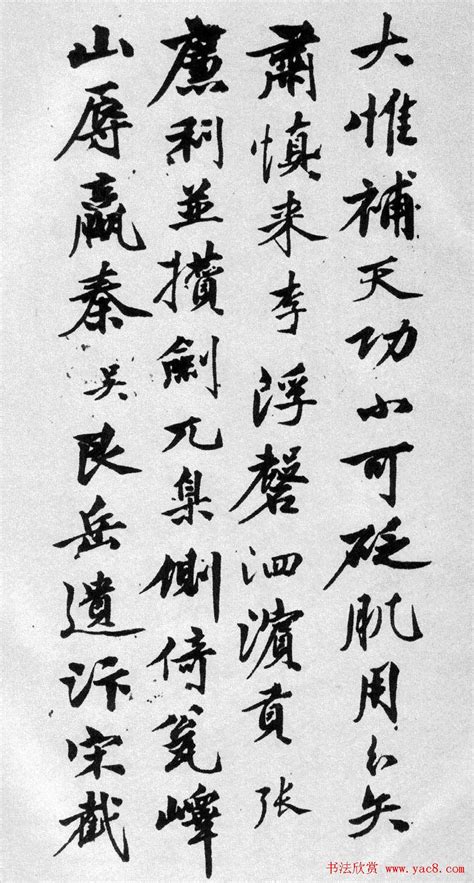 大惟補天功小可砭肌用矢
肅慎来李浮磬泗濱貢张
廉利並攢劍兀集側倚瓮嶧
山辱嬴秦吴艮岳遺汴宋截
书法欣赏 www.yac8.com